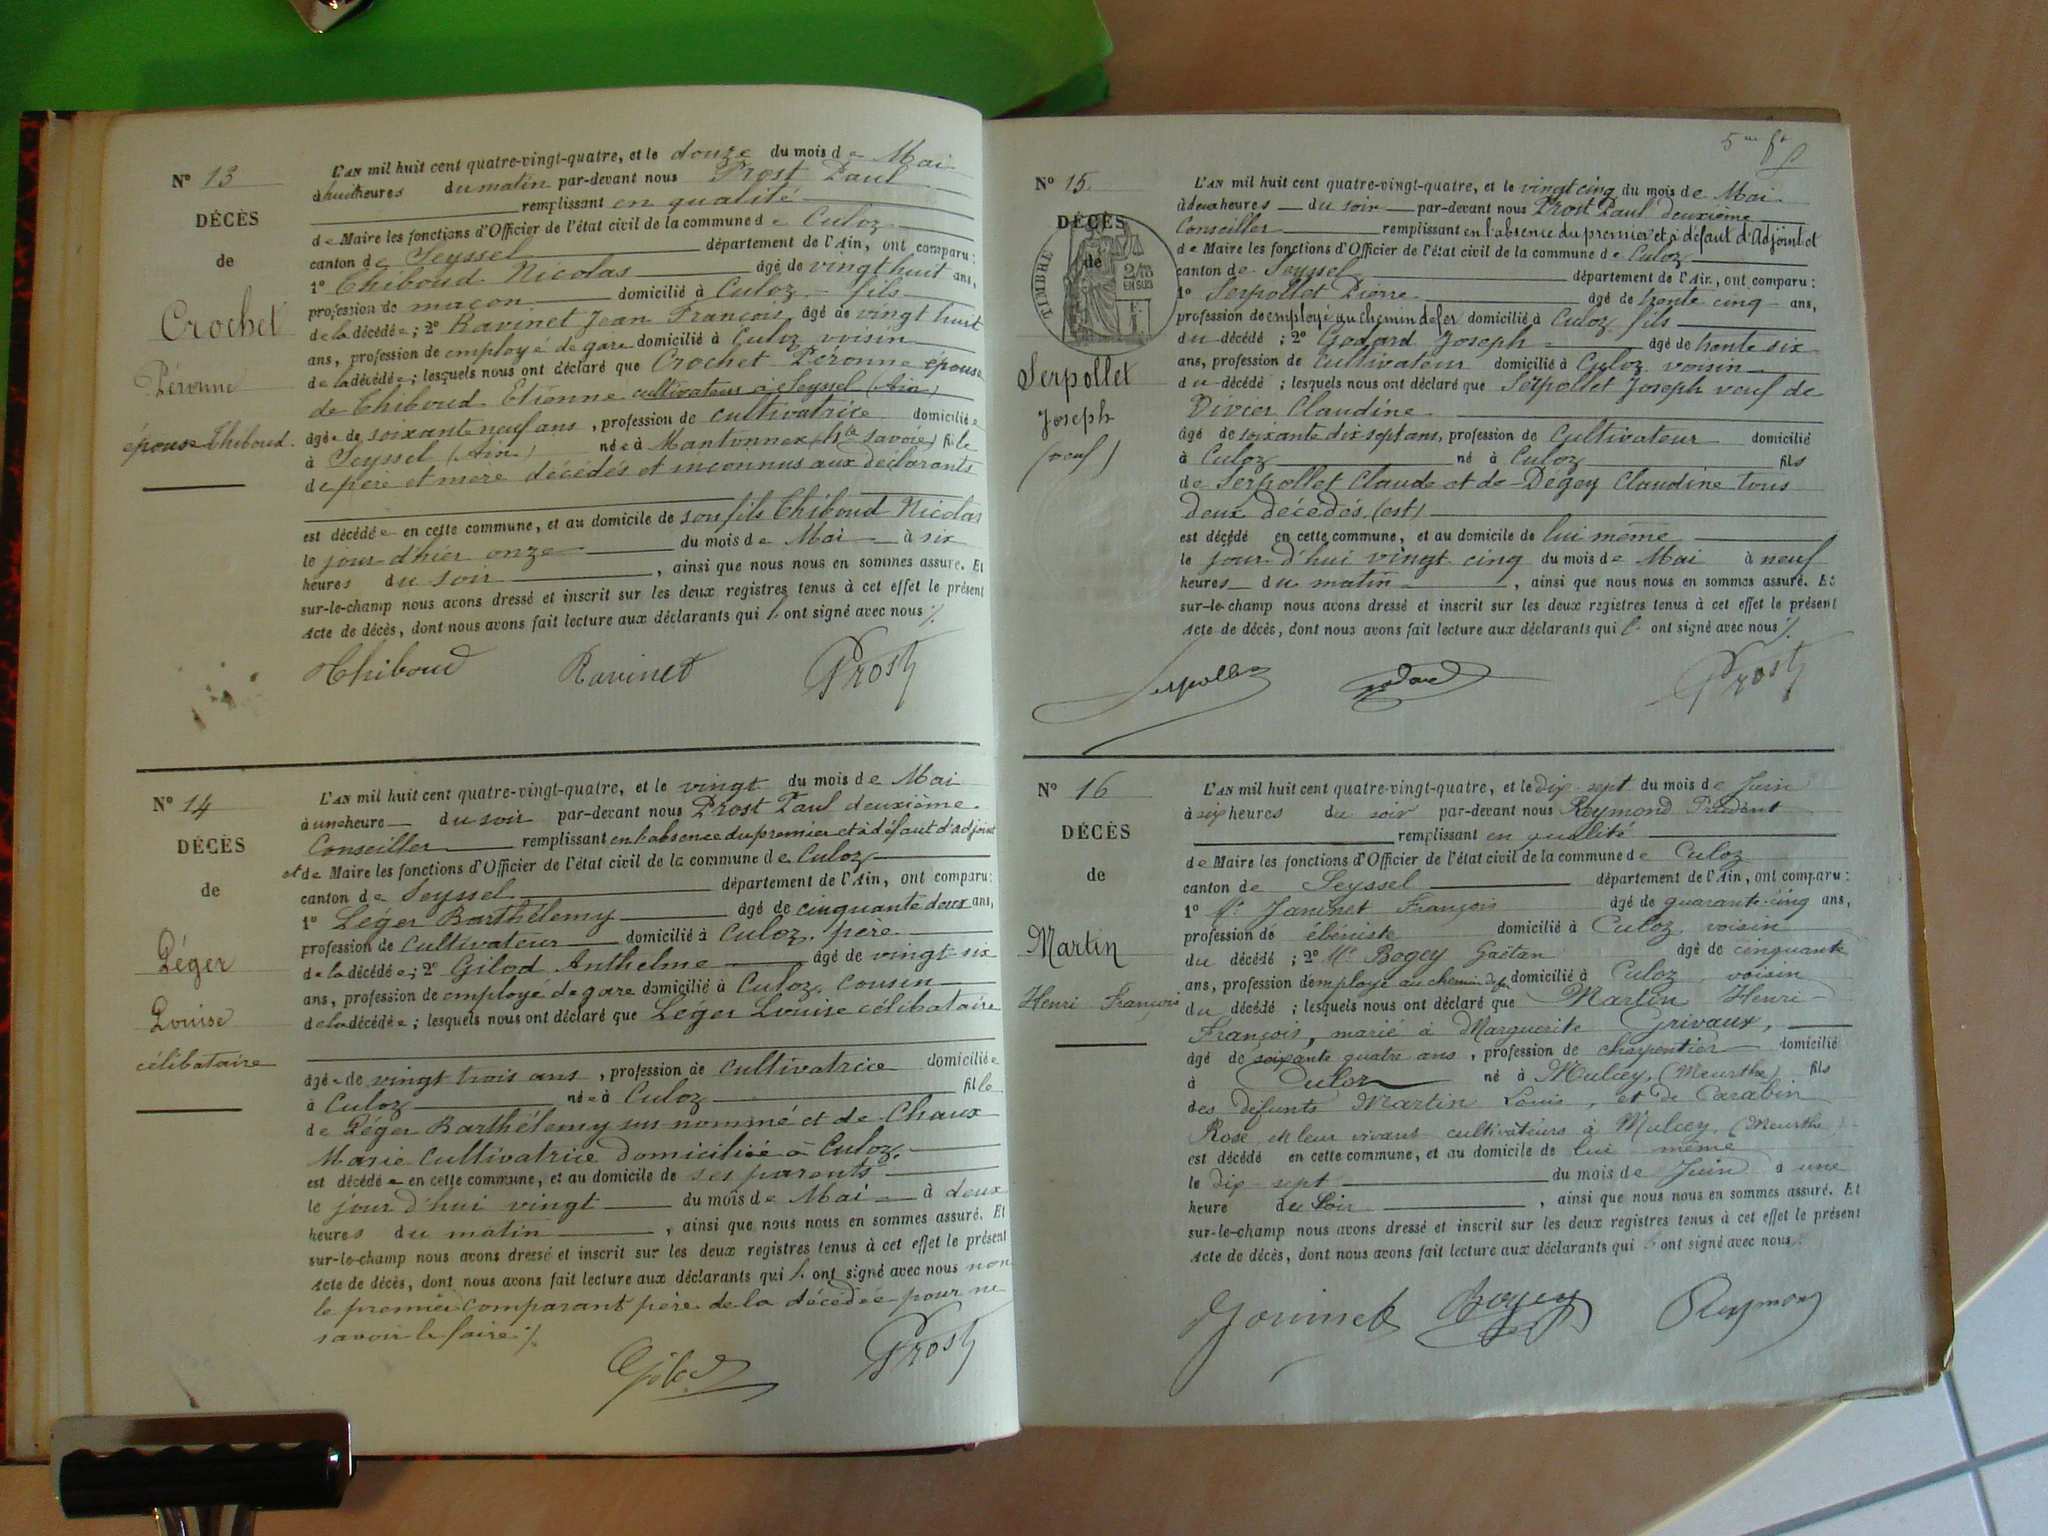 N° 13
DÉCÈS
de
Crochet
Péronne
épouse Thiboud.
L'AN mil huit cent quatre-vingt-quatre, et le douze du mois de Mai
à huit heures du matin par-devant nous Prost Paul
remplissant en qualité
de Maire les fonctions d'Officier de l'état civil de la commune de Culoz
canton de Seyssel département de l'Ain, ont comparu :
1° Thiboud Nicolas âgé de vingt huit ans,
profession de maçon domicilié à Culoz fils
de la décédée ; 2° Ravinet Jean François âgé de vingt huit
ans, profession de employé de gare domicilié à Culoz voisin
de la décédée ; lesquels nous ont déclaré que Crochet Péronne épouse
de Thiboud Etienne cultivateur à Seyssel (Ain)
âgée de soixante neuf ans, profession de cultivatrice domiciliée
à Seyssel (Ain) née à (hte Savoie) fille
de père et mère décédés et inconnus aux déclarants
est décédée en cette commune, et au domicile de son fils Thiboud Nicolas
le jour d'hier onze du mois de Mai à six
heures du soir, ainsi que nous nous en sommes assuré. Et
sur-le-champ nous avons dressé et inscrit sur les deux registres tenus à cet effet le présent
acte de décès, dont nous avons fait lecture aux déclarants qui l'ont signé avec nous ./.
Thiboud Ravinet Prost
N° 14
DÉCÈS
de
Léger
Louise
célibataire
L'AN mil huit cent quatre-vingt-quatre, et le vingt du mois de Mai
à une heure du soir par-devant nous Prost Paul deuxième
Conseiller remplissant en l'absence du premier et à défaut d'adjoint
et de Maire les fonctions d'Officier de l'état civil de la commune de Culoz
canton de Seyssel département de l'Ain, ont comparu :
1° Léger Barthélemy âgé de cinquante deux ans,
profession de cultivateur domicilié à Culoz, père
de la décédée ; 2° Gilod Anthelme âgé de vingt six
ans, profession de employé de gare domicilié à Culoz, cousin
de la décédée ; lesquels nous ont déclaré que Léger Louise célibataire
âgée de vingt trois ans, profession de cultivatrice domiciliée
à Culoz née à Culoz fille
de Léger Barthélemy sus nommé et de Chaux
Marie cultivatrice domiciliée à Culoz.
est décédée en cette commune, et au domicile de ses parents
le jour d'hui vingt du mois de Mai à deux
heures du matin, ainsi que nous nous en sommes assuré. Et
sur-le-champ nous avons dressé et inscrit sur les deux registres tenus à cet effet le présent
acte de décès, dont nous avons fait lecture aux déclarants qui l'ont signé avec nous non
le premier comparant père de la décédée pour ne
savoir le faire ./.
Gilod Prost
5me ft
N° 15
DÉCÈS
de
TIMBRE
2/10
EN SUS
Serpollet
Joseph
(veuf)
L'AN mil huit cent quatre-vingt-quatre, et le vingt cinq du mois de Mai
à deux heures du soir par-devant nous Prost Paul deuxième
Conseiller remplissant en l'absence du premier et à défaut d'Adjoint et
de Maire les fonctions d'Officier de l'état civil de la commune de Culoz
canton de Seyssel département de l'Ain, ont comparu :
1° Serpollet Pierre âgé de trente cinq ans,
profession de employé au chemin de fer domicilié à Culoz fils
du décédé ; 2° Godard Joseph âgé de trente six
ans, profession de cultivateur domicilié à Culoz voisin
du décédé ; lesquels nous ont déclaré que Serpollet Joseph veuf de
Divier Claudine
âgé de soixante dix sept ans, profession de cultivateur domicilié
à Culoz né à Culoz fils
de Serpollet Claude et de Dégey Claudine tous
deux décédés (est)
est décédé en cette commune, et au domicile de lui même
le jour d'hui vingt cinq du mois de Mai à neuf
heures du matin, ainsi que nous nous en sommes assuré. Et
sur-le-champ nous avons dressé et inscrit sur les deux registres tenus à cet effet le présent
acte de décès, dont nous avons fait lecture aux déclarants qui l'ont signé avec nous ./.
Serpollet Godard Prost
N° 16
DÉCÈS
de
Martin
Henri François
L'AN mil huit cent quatre-vingt-quatre, et le dix-sept du mois de Juin
à six heures du soir par-devant nous Reymond
remplissant en qualité
de Maire les fonctions d'Officier de l'état civil de la commune de Culoz
canton de Seyssel département de l'Ain, ont comparu :
1° Mr Janinet François âgé de quarante-cinq ans,
profession de ébéniste domicilié à Culoz voisin
du décédé ; 2° Mr Bogey Gaëtan âgé de cinquante
ans, profession d'employé au chemin de fer domicilié à Culoz, voisin
du décédé ; lesquels nous ont déclaré que Martin Henri
François, marié à Marguerite Grivaux,
âgé de soixante quatre ans, profession de charpentier domicilié
à Culoz né à Mulcey, (Meurthe) fils
des défunts Martin Louis, et de Carabin
Rose, en leur vivant cultivateurs à Mulcey, (Meurthe)
est décédé en cette commune, et au domicile de lui même
le dix-sept du mois de Juin à une
heure du Soir, ainsi que nous nous en sommes assuré. Et
sur-le-champ nous avons dressé et inscrit sur les deux registres tenus à cet effet le présent
acte de décès, dont nous avons fait lecture aux déclarants qui l'ont signé avec nous
Janinet Bogey Reymond